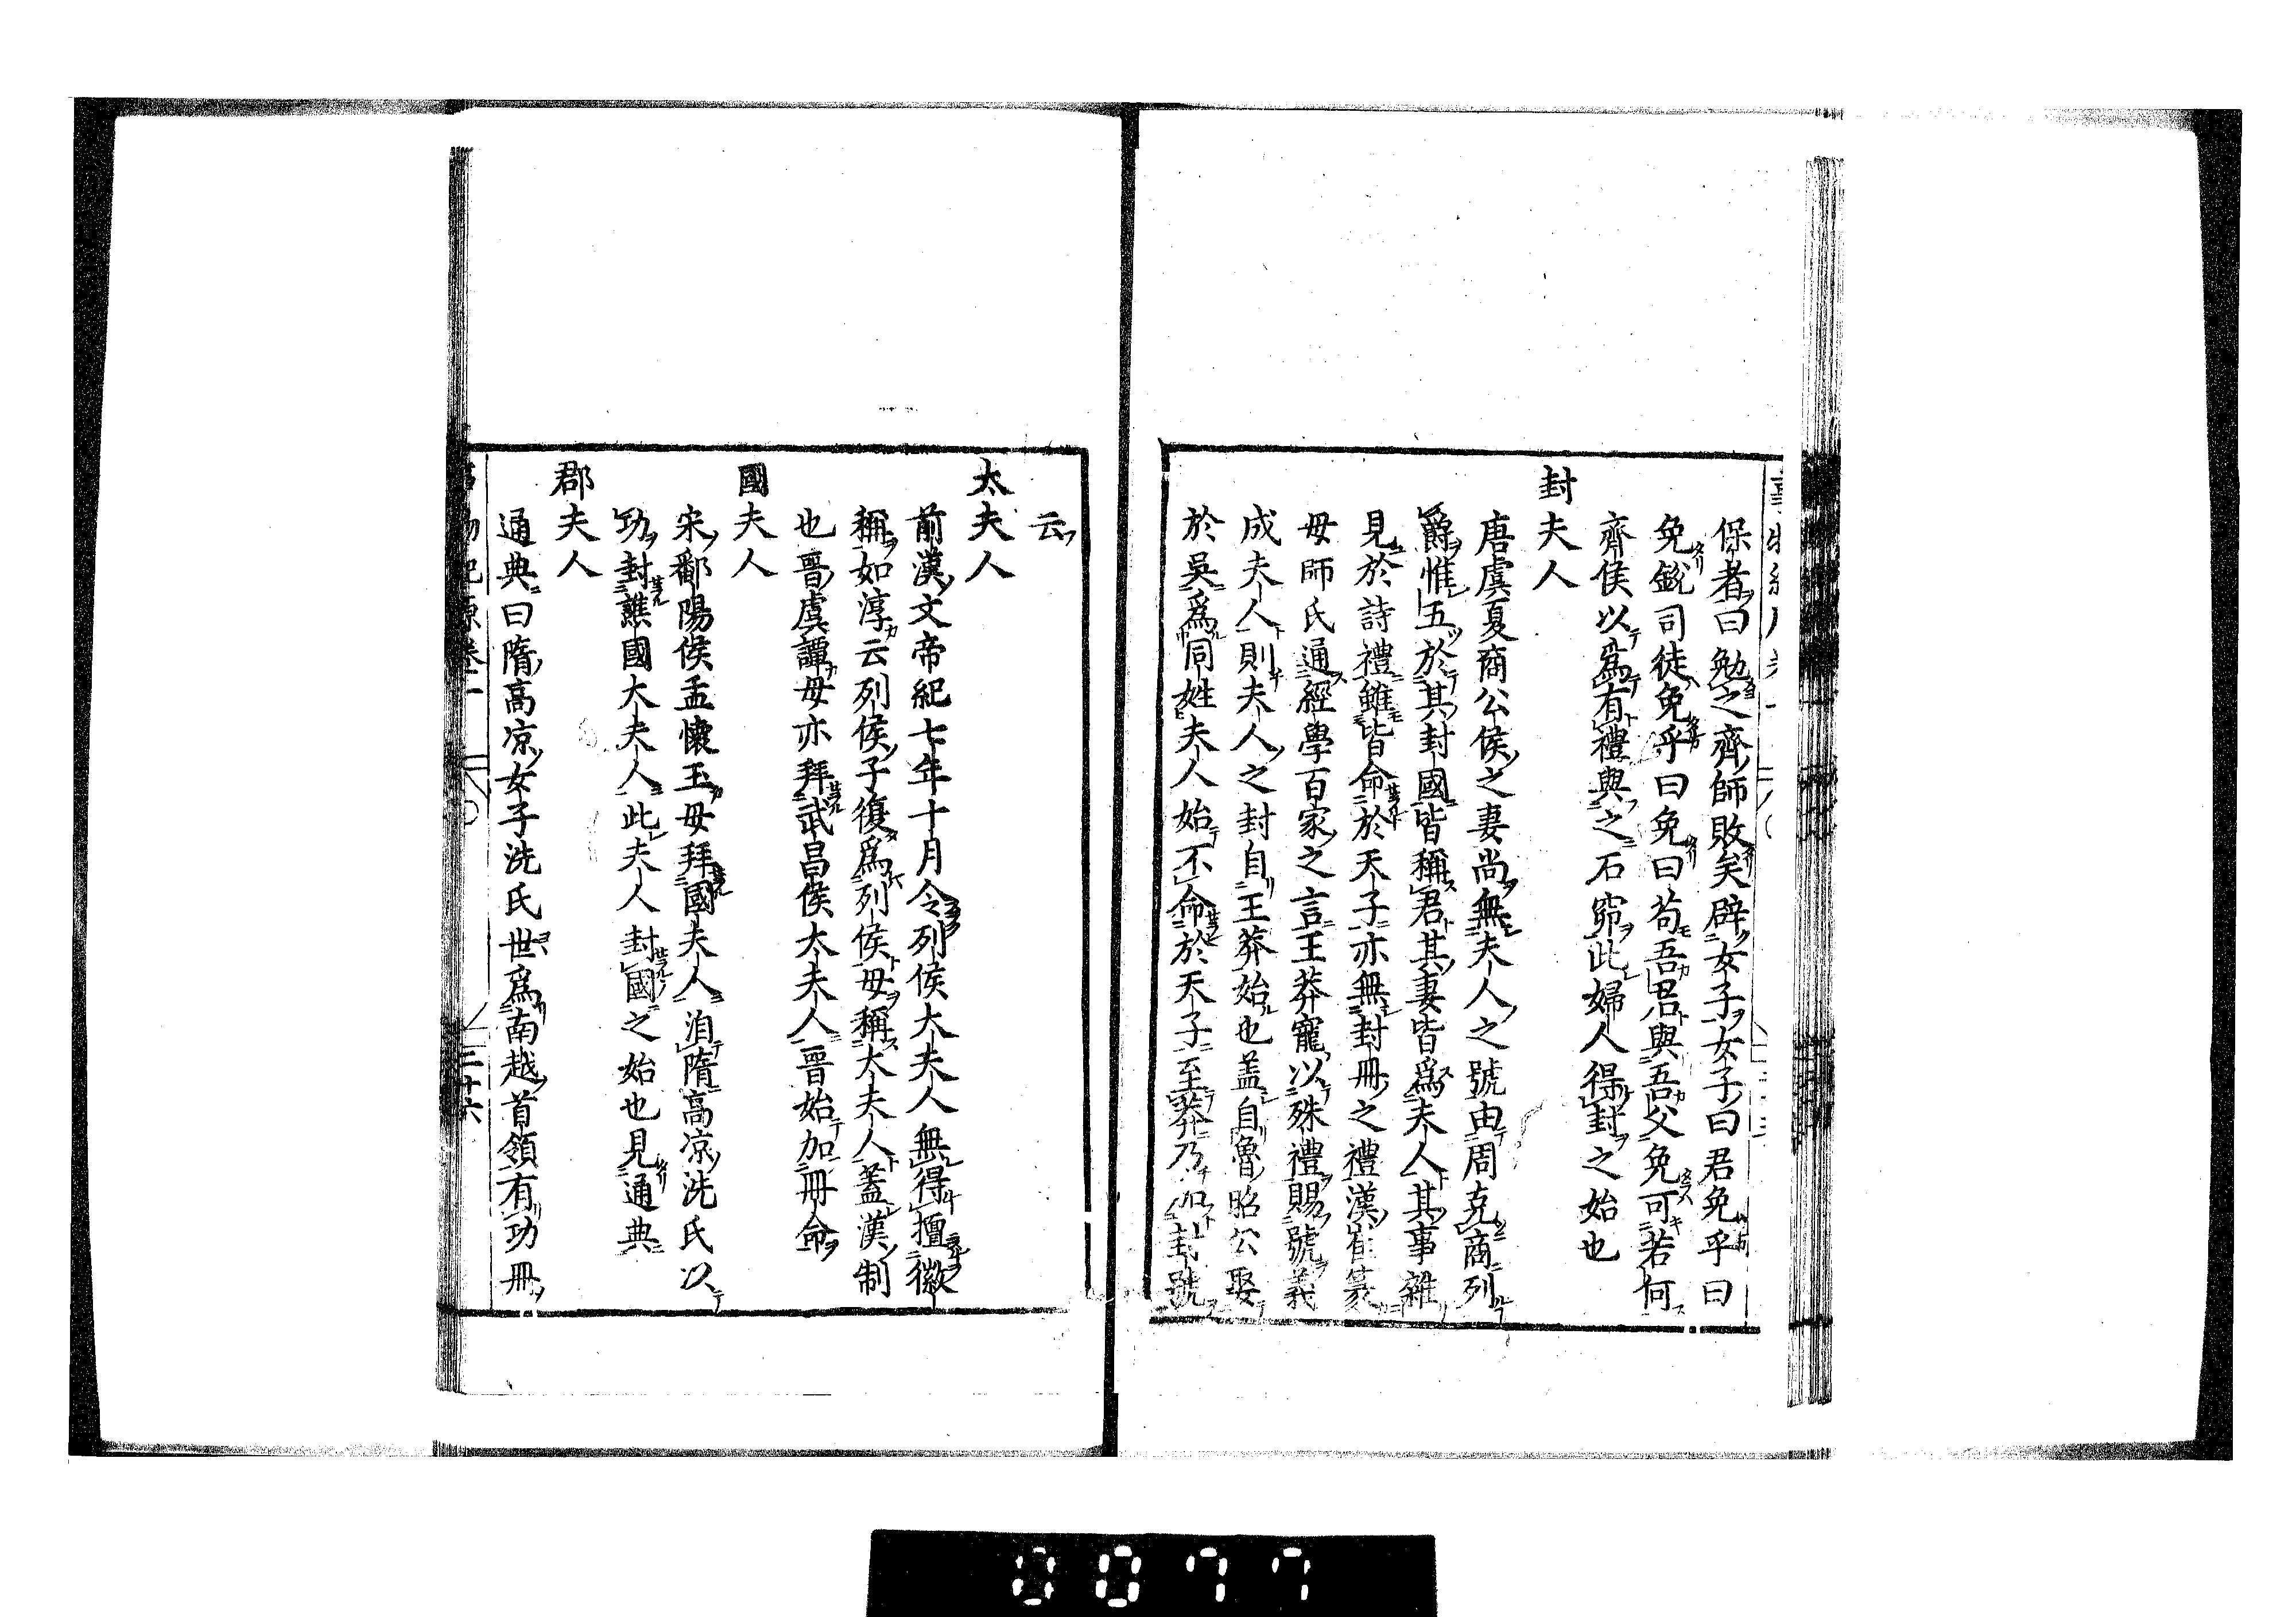 保者曰勉之齊師敗矣辟女子女子曰君免乎曰
免銳司徒免乎曰免曰苟吾君與吾父免可若何
齊侯以爲有禮與之石窌此婦人得封之始也
封夫人
唐虞夏商公侯之妻尚無夫人之號由周克商列
爵惟五於其封國皆稱君其妻皆爲夫人其事雜
見於詩禮雖皆命於天子亦無封冊之禮漢崔篆
母師氏通經學百家之言王莽寵以殊禮賜號義
成夫人則夫人之封自王莽始也盖自魯昭公娶
於吳爲同姓夫人始不命於天子至莽乃加封號
云
太夫人
前漢文帝紀七年十月令列侯大夫人無得擅徵
稱如淳云列侯子復爲列侯母稱大夫人蓋漢制
也晋虞譚母亦拜武昌侯太夫人晋始加冊命
國夫人
宋鄱陽侯孟懷玉母拜國夫人洎隋高凉洗氏以
功封譙國大夫人此夫人封國之始也見通典
郡夫人
通典曰隋高凉女子洗氏世爲南越首領有功冊
事物紀原卷一 二十六
0077